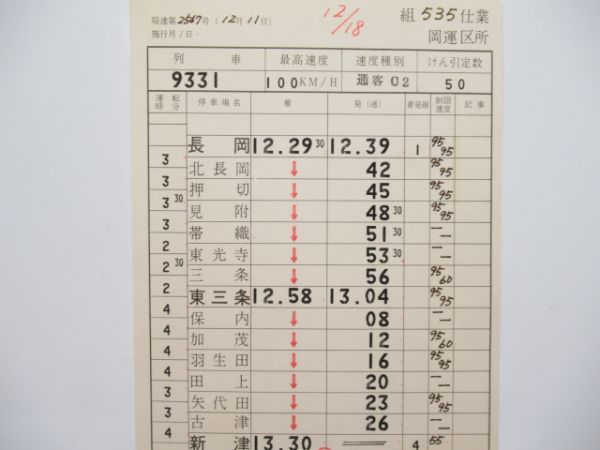 局達第2567号(12月11日)
施行月/日・
12/18
組 535 仕業
岡運区所
列 車 最高速度 速度種別 けん引定数
9331 100KM/H 通客C2 50
運転時分 停車場名 着 発(通) 着発線 制限速度 記事
長岡 12.29 30 12.39 1 95/95
3
北長岡 ↓ 42 95/95
3
押切 ↓ 45 95/95
3 30
見附 ↓ 48 30 95/95
3
帯織 ↓ 51 30 — —
2
東光寺 ↓ 53 30 — —
2 30
三条 ↓ 56 95/60
2
東三条 12.58 13.04 95/95
4
保内 ↓ 08 — —
4
加茂 ↓ 12 95/60
4
羽生田 ↓ 16 95/95
4
田上 ↓ 20 — —
3
矢代田 ↓ 23 95/95
3
古津 ↓ 26 — —
4
新津 13.30 4 55